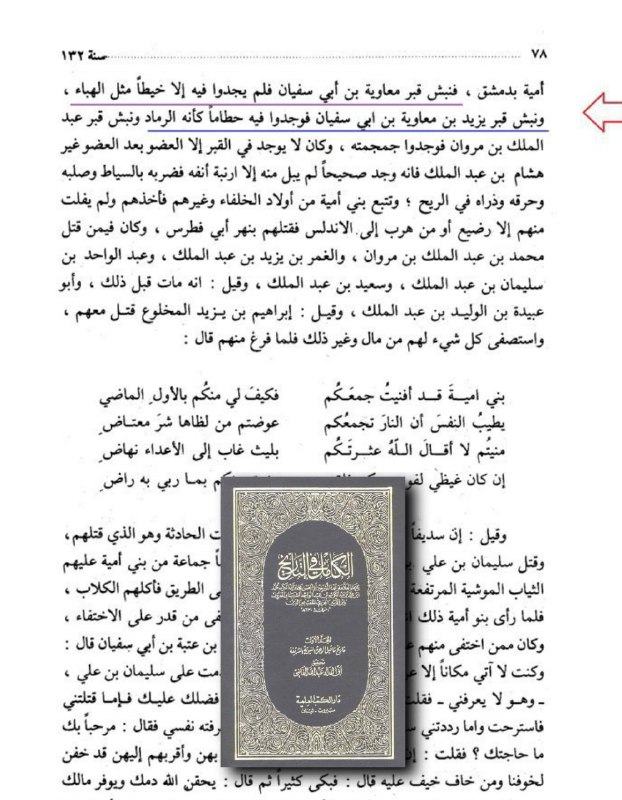 ٧٨ سنة ١٣٢
أمية بدمشق ، فنبش قبر معاوية بن أبي سفيان فلم يجدوا فيه إلا خيطاً مثل الهباء ،
ونبش قبر يزيد بن معاوية بن ابي سفيان فوجدوا فيه حطاماً كأنه الرماد ونبش قبر عبد
الملك بن مروان فوجدوا جمجمته ، وكان لا يوجد في القبر إلا العضو بعد العضو غير
هشام بن عبد الملك فانه وجد صحيحاً لم يبل منه إلا ارنبة أنفه فضربه بالسياط وصلبه
وحرقه وذراه في الريح ؛ وتتبع بني أمية من أولاد الخلفاء وغيرهم فأخذهم ولم يفلت
منهم إلا رضيع أو من هرب إلى الاندلس فقتلهم بنهر أبي فطرس ، وكان فيمن قتل
محمد بن عبد الملك بن مروان ، والغمر بن يزيد بن عبد الملك ، وعبد الواحد بن
سليمان بن عبد الملك ، وسعيد بن عبد الملك ، وقيل : انه مات قبل ذلك ، وأبو
عبيدة بن الوليد بن عبد الملك ، وقيل : إبراهيم بن يزيد المخلوع قتل معهم ،
واستصفى كل شيء لهم من مال وغير ذلك فلما فرغ منهم قال :
بني اميةَ قد أفنيتُ جمعَكُم فكيفَ لي منكُم بالأول الماضي
يطيبُ النفسَ أن النارَ تجمعُكم عوضتم من لظاها شرَ معتاضِ
منيتُم لا أقالَ اللّهُ عثرتَكُم بليث غاب إلى الأعداء نهاضِ
إن كان غيظي لفو كم بما ربي به راضِ
وقيل : إن سديفاً ت الحادثة وهو الذي قتلهم ،
وقتل سليمان بن علي ب اً جماعة من بني أمية عليهم
الثياب الموشية المرتفعة ى الطريق فأكلهم الكلاب ،
فلما رأى بنو أمية ذلك ا فى من قدر على الاختفاء ،
وكان ممن اختفى منهم ع بن عتبة بن أبي سفيان قال :
وكنت لا آتي مكاناً إلا عر مت على سليمان بن علي ،
ـ وهو لا يعرفني ـ فقلت فضلك عليك فإما قتلتني
فاسترحت واما رددتني س رفته نفسي فقال : مرحباً بك
ما حاجتك ؟ فقلت : إن يهن وأقربهم إليهن قد خفن
لخوفنا ومن خاف خيف عليه قال : فبكى كثيراً ثم قال : يحقن الله دمك ويوفر مالك
الكامل في التاريخ
دار الكتب العلمية